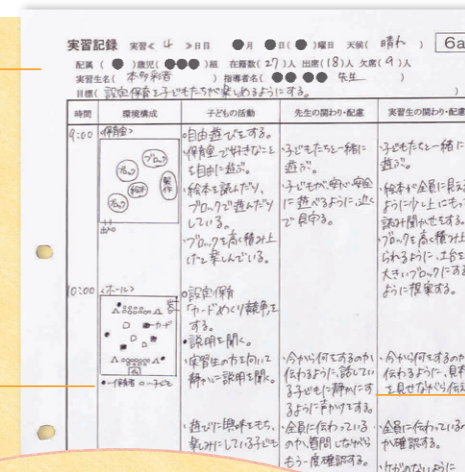 実習記録 実習< 4 >日目 ●月 ●日(●)曜日 天候( 晴れ ) 6a
配属 ( ● )歳児( ●●● )組 在籍数( 27 )人 出席( 18 )人 欠席( 9 )人
実習生名( 本多彩香 ) 指導者名( ●● ●● 先生 )
目標( 設定保育を子どもたちが楽しめるようにする。 )
時間 環境構成 子どもの活動 先生の関わり・配慮 実習生の関わり・配慮
9:00
<保育室>
ブロック
絵本
製作
出入口
○自由遊びをする。
・保育室で好きなこと
を自由に遊ぶ。
・絵本を読んだり、
ブロックで遊んだり
している。
・ブロックを高く積み上
げたと楽しんでいる。
・子どもたちと一緒に
遊ぶ。
・子どもが、安心・安全
に遊べるように、近く
で見守る。
・子どもたちと一緒に
遊ぶ。
・絵本が全員に見え
ように少し上にもって
読み聞かせをする。
・ブロックを高く積み上
られるように、土台を
大きいブロックにする
ように提案する。
10:00
<ホール>
カード
●-保育者 ○-子ども
○設定保育
「カードめくり競争」を
する。
・説明を聞く。
・実習生の方を向いて
静かに説明を聞く。
・遊びに興味をもち、
楽しみにしている子ども
・今から何をするのか
伝わるように、話してい
る子どもに静かにす
るように声かけをする。
・全員に伝わっている
のか、質問しながら
もう一度確認する。
・今から何をするのか
伝わるように、見本
を見せながら伝え
・全員に伝わっているの
か確認する。
・けがのないように